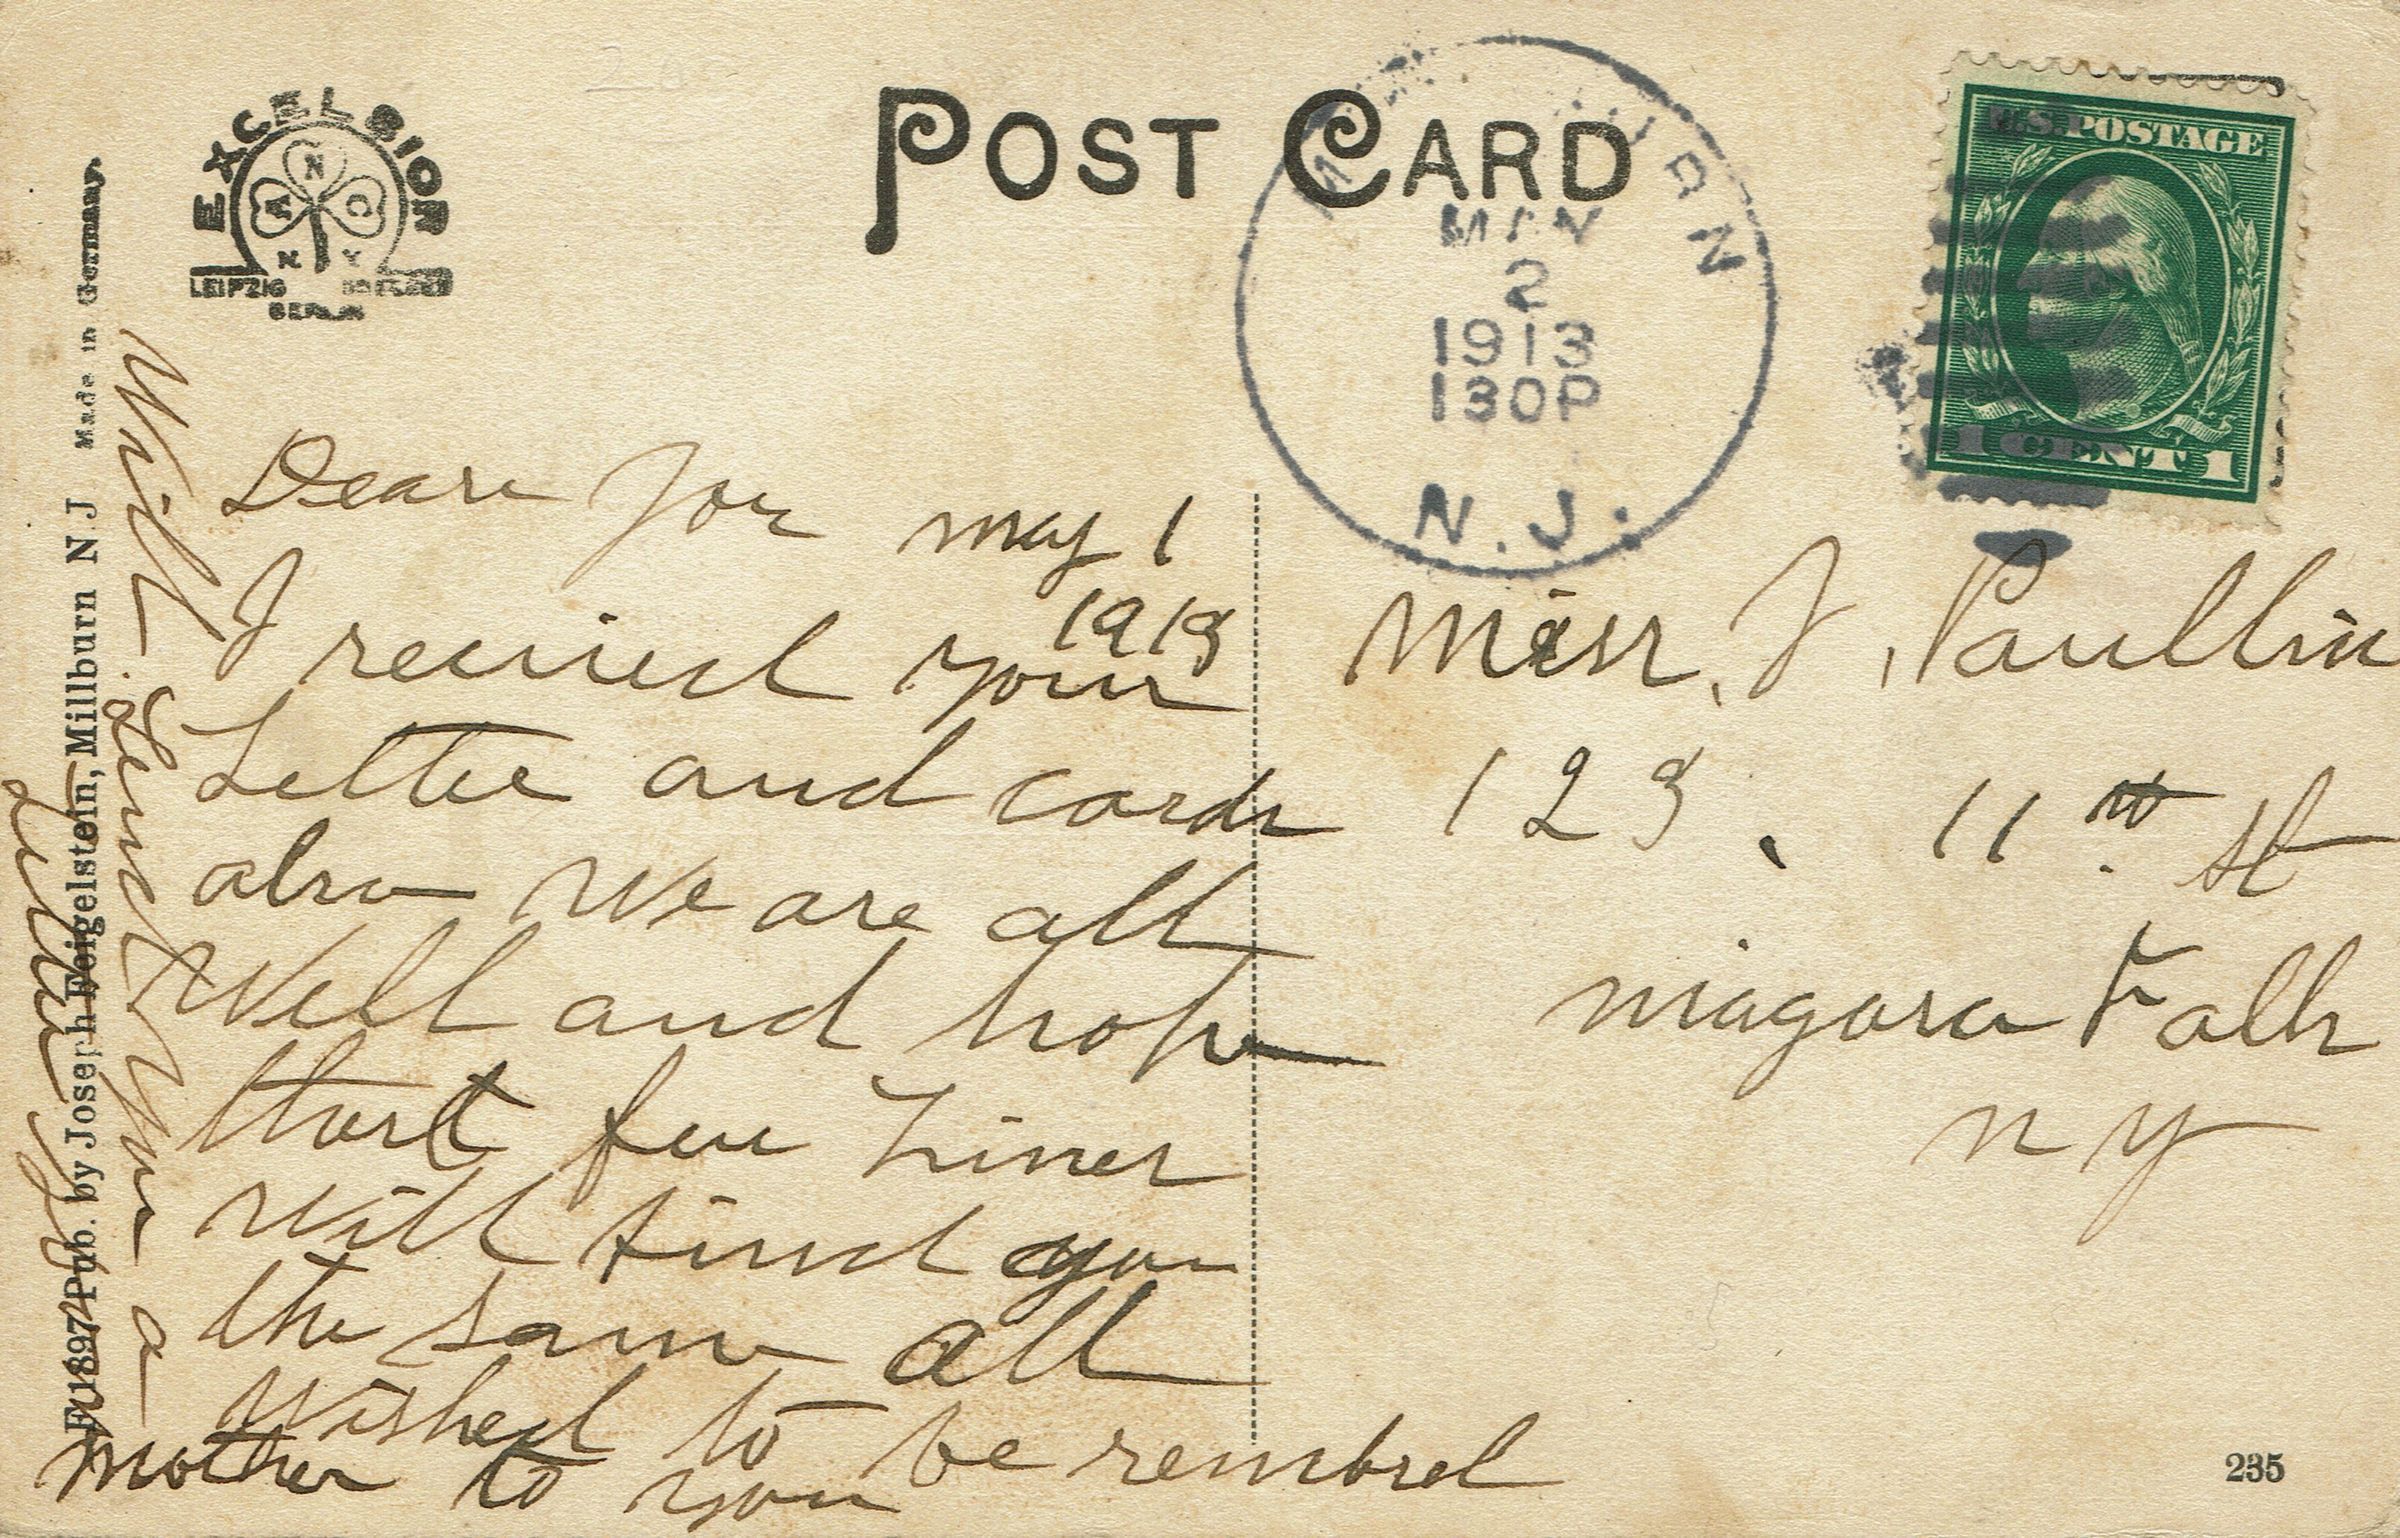 POST CARD
EXCELSIOR
A N C
N Y
LEIPZIG
BERLIN
N.J.
2
1913
130P
U.S. POSTAGE
1 CENT 1
E 11897 Pub. by Joseph Feigelstein, Millburn N J Made in Germany.
Dear
may 1
1913
I recived your
Letter and cards
also we are all
Well and hope
that few Lines
will find you
the same all
wished to be rembred
to you
mother
Will send you a
Letter
Miss. J. Paullin
123. 11th St
Niagara Falls
N Y
235